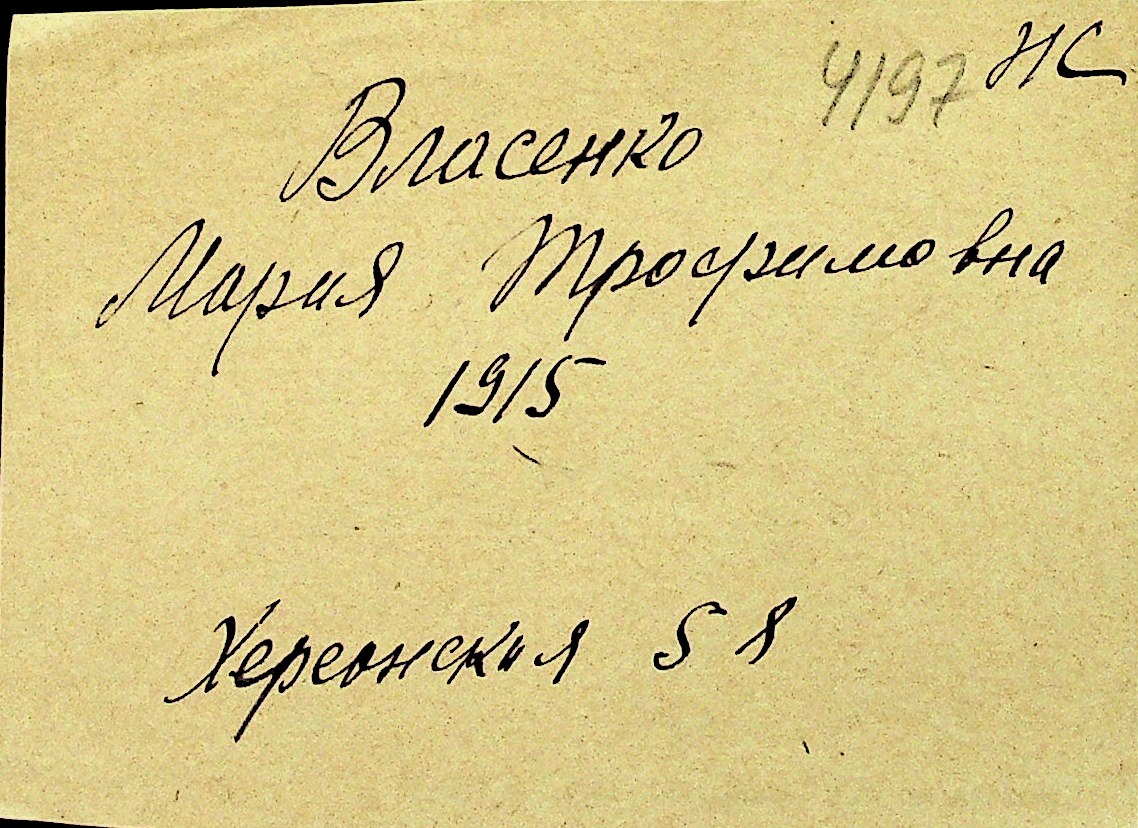 4197 НС
Власенко
Мария Трофимовна
1915
Херсонская 58